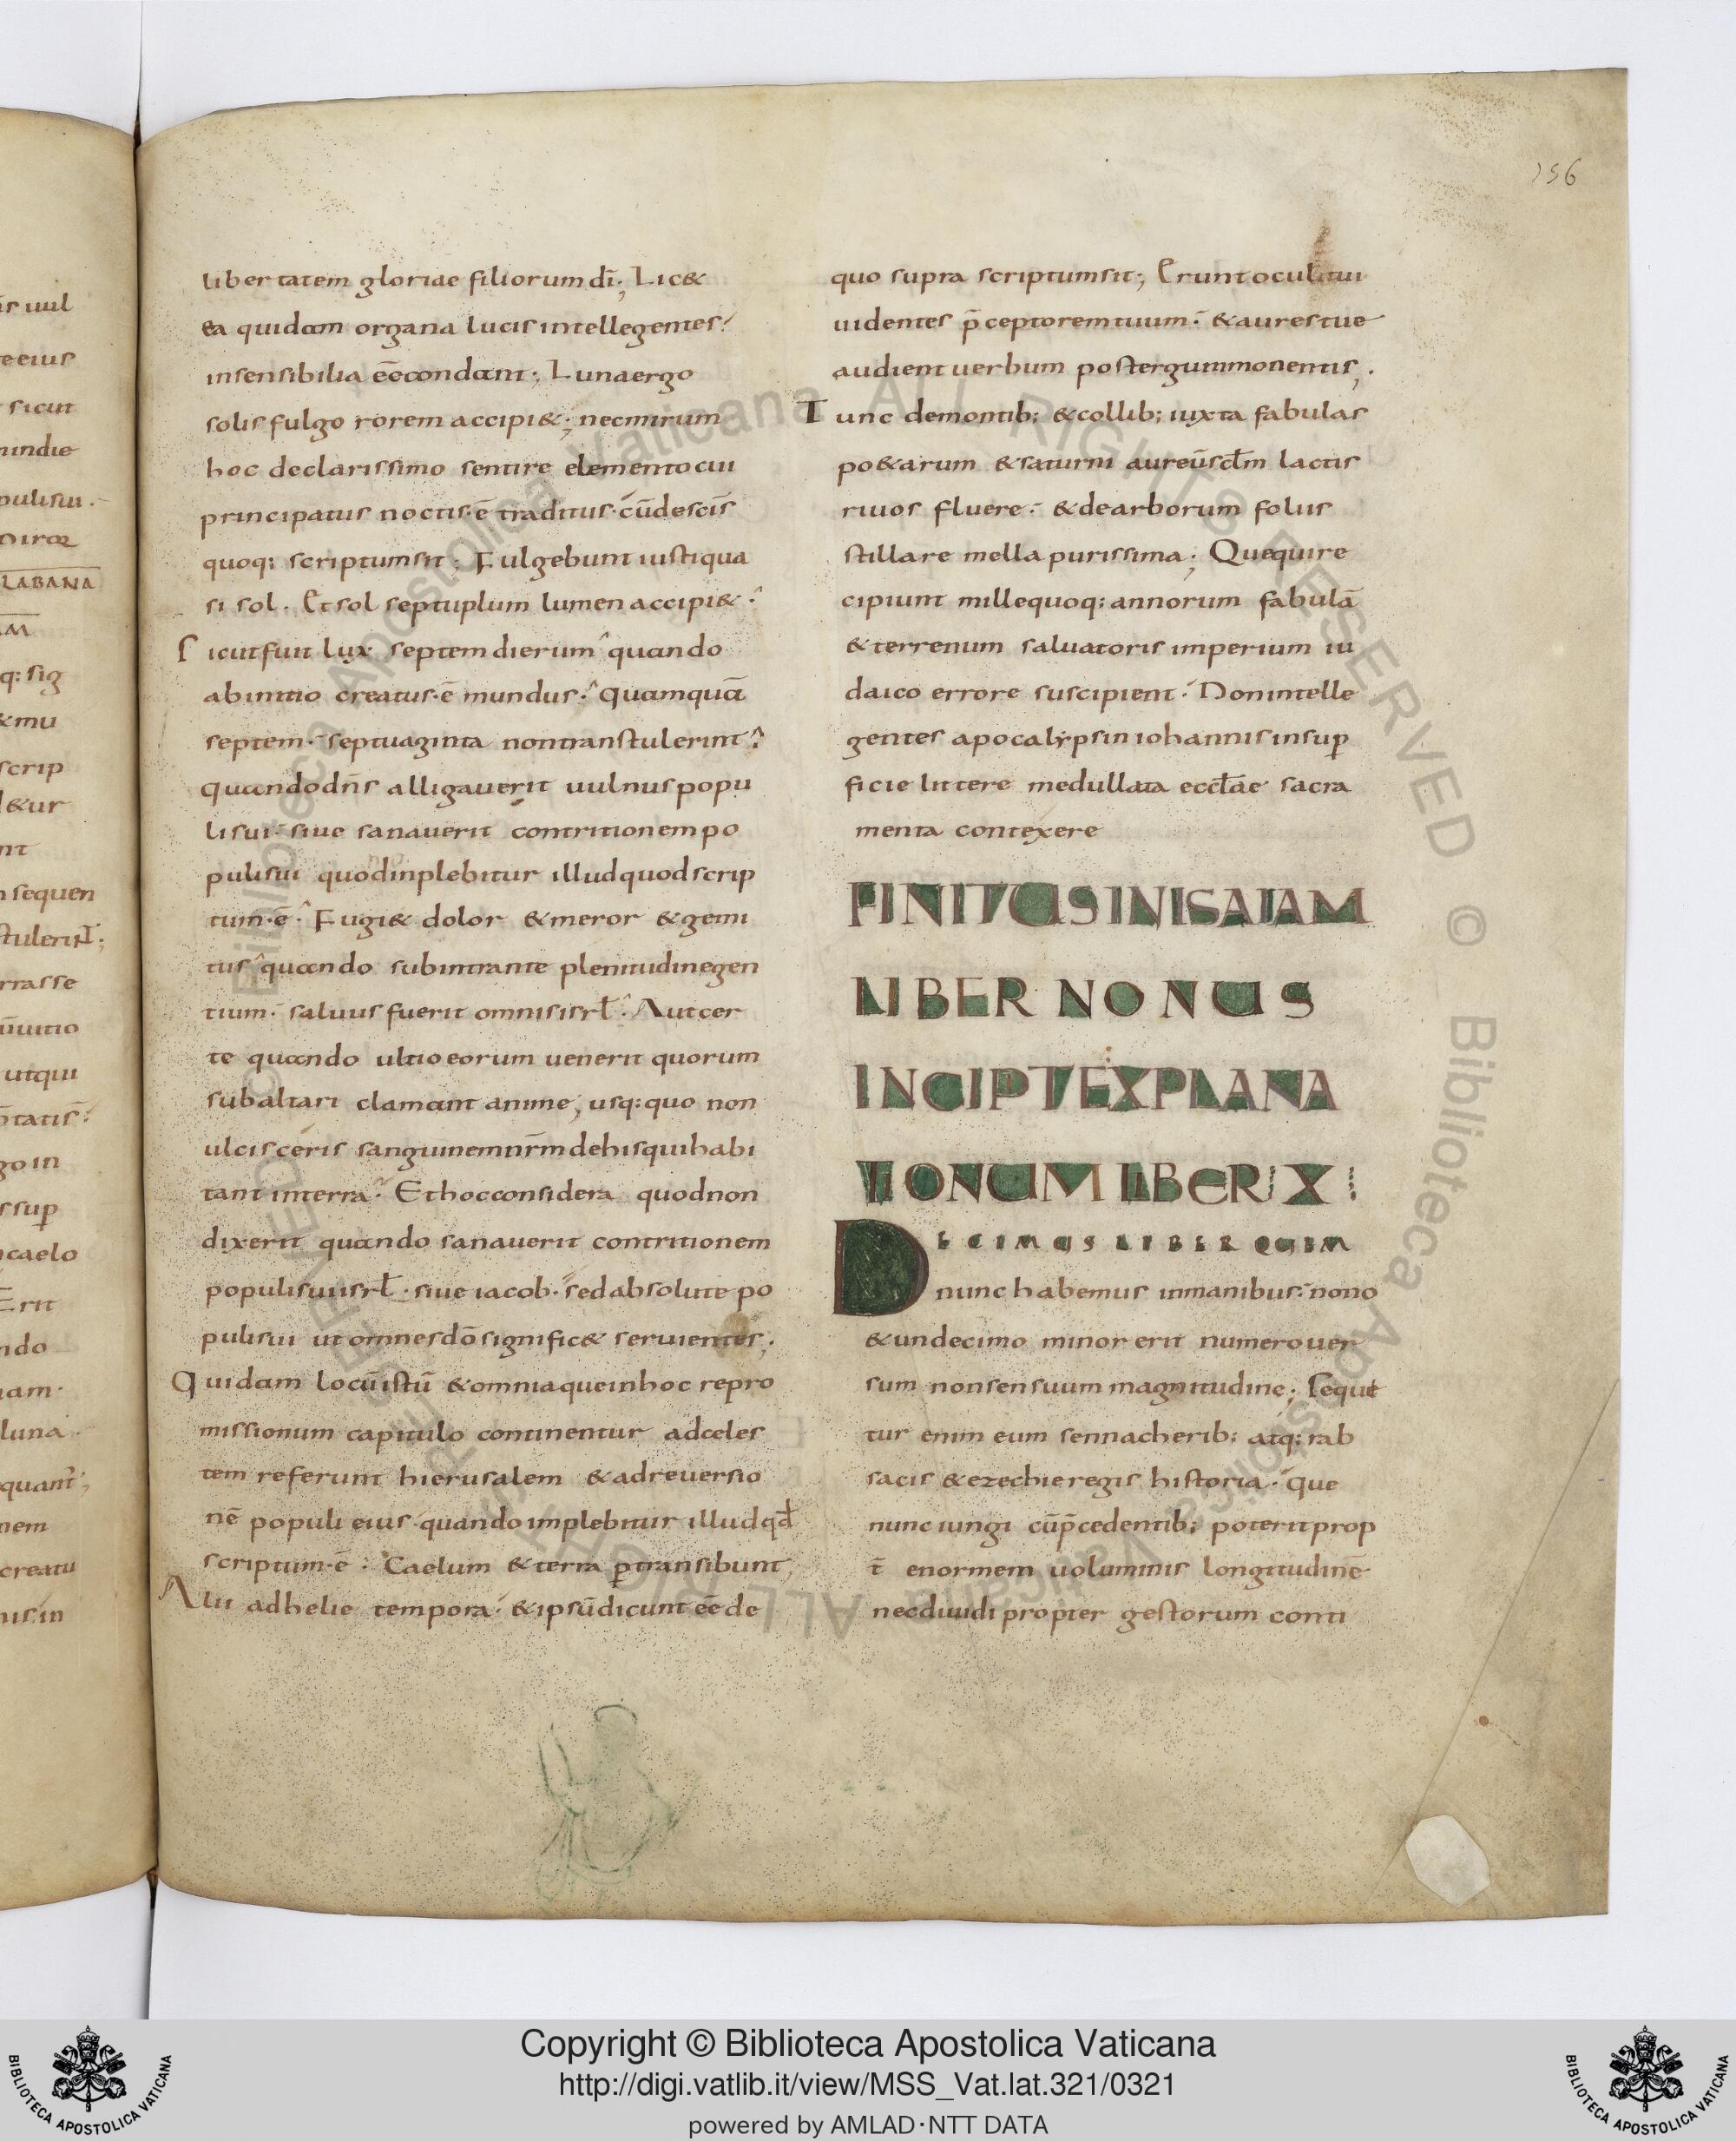 156
libertatem gloriae filiorum dī; Lic&
ea quidam organa lucis intellegentes.
insensibilia eē condant; Luna ergo
solis fulgo rorem accipi&; nec mirum
hoc declarissimo sentire elemento cui
principatus noctis·ē traditus· cū de scīs
quoq: scriptum sit; Fulgebunt iusti qua
si sol. Et sol septuplum lumen accipi&.
Sicut fuit lux septem dierum quando
ab initio creatus·ē mundus. quamquā
septem· septuaginta non transtulerint.
quando dn̄s alligauerit uulnus popu
li sui· siue sanauerit contritionem po
puli sui quod inplebitur illud quod scrip
tum·ē. Fugi& dolor & meror & gemi
tus quando subintrante plenitudine gen
tium· saluus fuerit omnis isrł. Aut cer
te quando ultio eorum uenerit quorum
sub altari clamant anime, usq: quo non
ulcisceris sanguinem nr̄m de his qui habi
tant in terra. Et hoc considera quod non
dixerit quando sanauerit contritionem
populi sui isrł· siue iacob· sed absolute po
puli sui ut omnes dō signific& seruientes;
Quidam locū istū & omnia que in hoc repro
missionum capitulo continentur ad celes
tem referunt hierusalem & ad reuersio
nē populi eius· quando implebitur illud qđ
scriptum·ē: Caelum & terra p̱transibunt,
Alii ad helie tempora. & ipsū dicunt eē de
quo supra scriptum sit; Erunt oculi tui
uidentes p̄ceptorem tuum. & aures tue
audient uerbum post tergum monentis;
Tunc de montib; & collib; iuxta fabulas
po&arum & saturni aureū scłm lactis
riuos fluere. & de arborum foliis
stillare mella purissima; Que qui re
cipiunt mille quoq: annorum fabulā
& terrenum saluatoris imperium iu
daico errore suscipient. Non intelle
gentes apocalypsin iohannis in sup̱
ficie littere medullata eccłae sacra
menta contexere
FINITUS IN ISAIAM
LIBER NONUS
INCIPT EXPLANA
TIONUM LIBER X
DECIMUS LIBER QUEM
nunc habemus in manibus. nono
& undecimo minor erit numero uer
sum non sensuum magnitudine; Sequi
tur enim eum sennacherib; atq: rab
sacis & ezechie regis historia. que
nunc iungi cū p̄cedentib; poterit prop
t̄ enormem uoluminis longitudinē
nec diuidi propter gestorum conti
Copyright © Biblioteca Apostolica Vaticana
http://digi.vatlib.it/view/MSS_Vat.lat.321/0321
powered by AMLAD·NTT DATA
BIBLIOTECA APOSTOLICA VATICANA
BIBLIOTECA APOSTOLICA VATICANA